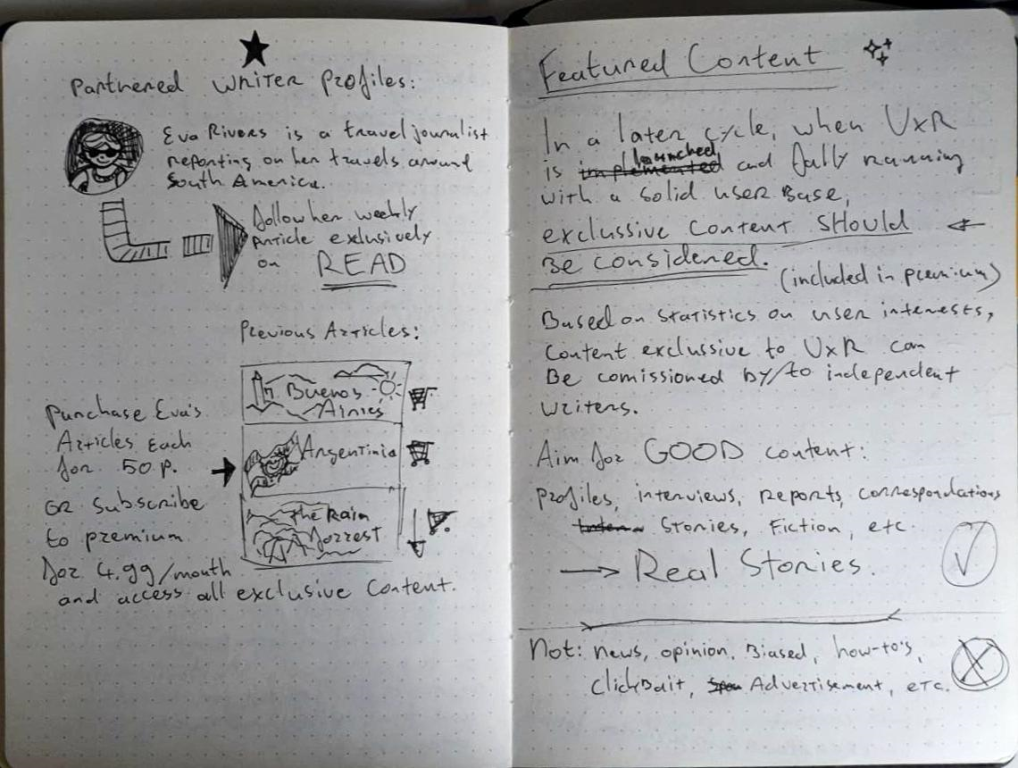 Partnered Writer Profiles:
Eva Rivers is a travel journalist
reporting on her travels around
South America.
follow her weekly
Article exlusively
on READ
Previous Articles:
Buenos
Airies
Argentinia
The Rain
Forrest
Purchase Eva's
Articles each
for 50 p.
or subscribe
to premium
for 4.99/month
and access all exclusive content.
Featured Content
In a later cycle, when UxR
launched
is implemented and fully running
with a solid user base,
exclussive content should
be considered.
(included in premium)
Based on statistics on user interests,
content exclussive to UxR can
be comissioned by/to independent
writers.
Aim for GOOD content:
profiles, interviews, reports, correspondations
stories, Fiction, etc.
Real Stories.
Not: news, opinion. Biased, how-to's,
Clickbait, Advertisement, etc.